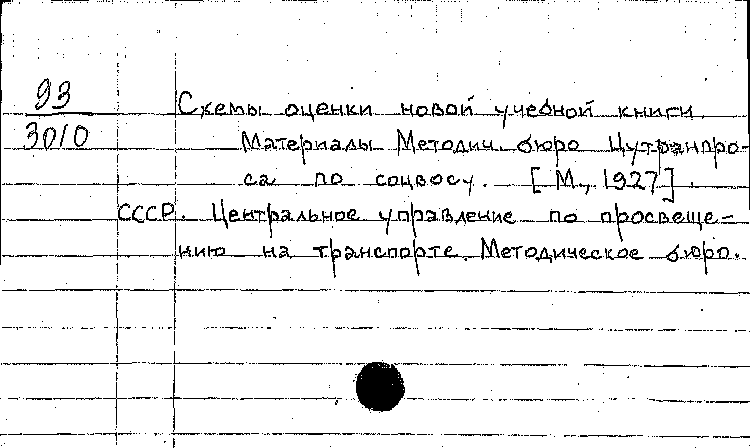 93
3010
Схемы оценки новой учебной книги.
Материалы Методич. бюро Цутранпро-
са по соцвосу. [М., 1927].
СССР. Центральное управление по просвеще-
нию на транспорте. Методическое бюро.